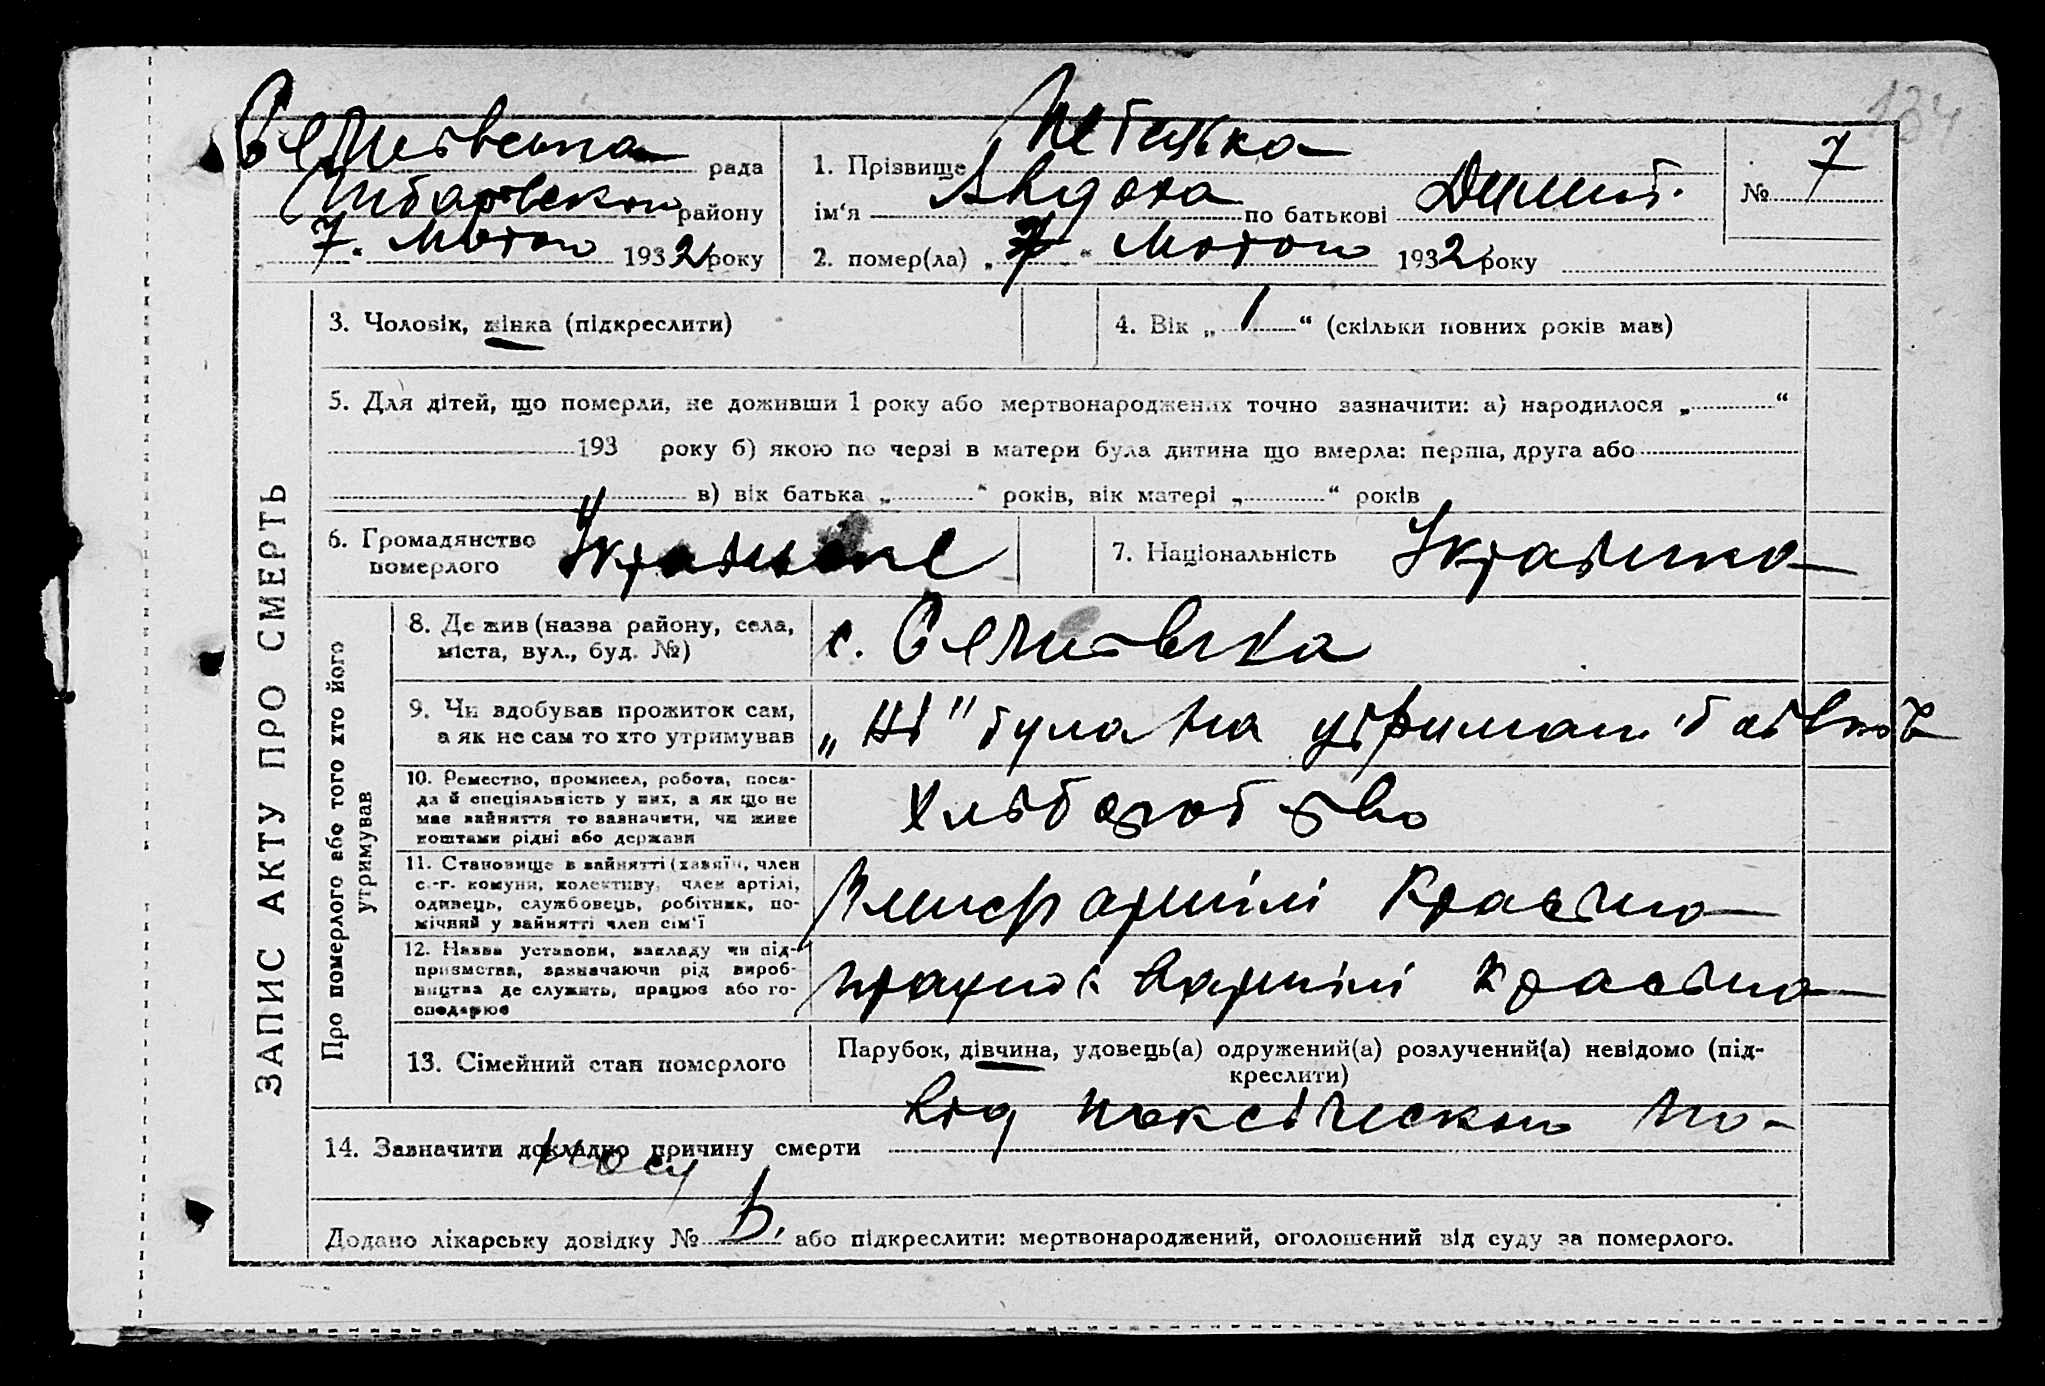 134
рада
1. Прізвище
№ 7
району
ім'я Явдоха по батькові Дмит.
7 1932 року
2. помер(ла) „7“ 1932 року
ЗАПИС АКТУ ПРО СМЕРТЬ
3. Чоловік, жінка (підкреслити)
4. Вік „ 1 “ (скільки повних років мав)
5. Для дітей, що померли, не доживши 1 року або мертвонароджених точно зазначити: а) народилося „ “
193 року б) якою по черзі в матери була дитина що вмерла: перша, друга або
в) вік батька „ “ років, вік матері „ “ років
6. Громадянство
померлого
7. Національність Українка
Про померлого або того хто його
утримував
8. Де жив (назва району, села,
міста, вул., буд. №)
с.
9. Чи вдобував прожиток сам,
а як не сам то хто утримував
„Ні“ була на утриман. батьків
10. Ремество, промисел, робота, поса-
да й спеціяльність у них, а як що не
має зайняття то зазначити, чи живе
коштами рідні або держави
Хліборобство
11. Становище в зайнятті (хазяїн, член
с.-г. комуни, колективу, член артілі,
одинець, службовець, робітник, по-
мічний у зайнятті член сім'ї
Член артілі
12. Назва установи, закладу чи під-
приємства, зазначаючи рід вироб-
ництва де служить, працює або го-
сподарює
в артілі
13. Сімейний стан померлого
Парубок, дівчина, удовець(а) одружений(а) розлучений(а) невідомо (під-
креслити)
14. Зазначити докладно причину смерти
від по-
носу
Додано лікарську довідку № або підкреслити: мертвонароджений, оголошений від суду за померлого.